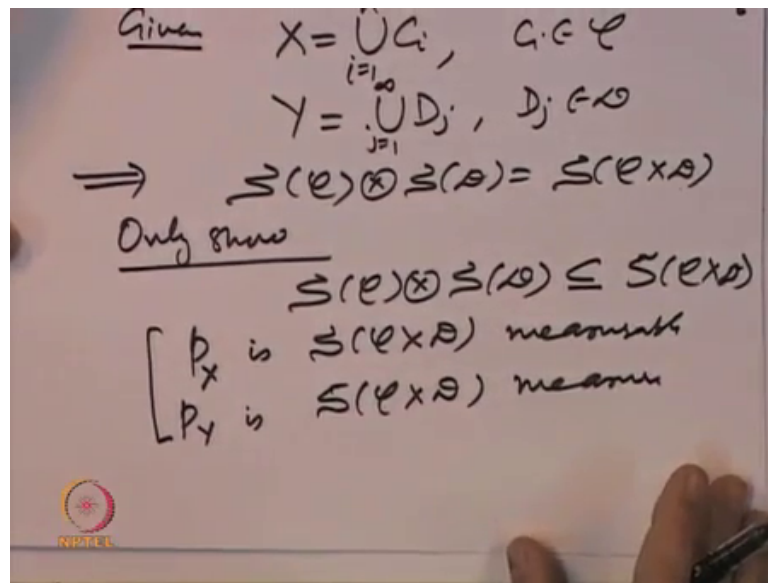 Given X = ⋃ Ci, Ci ∈ 𝒞
i=1
∞
Y = ⋃ Dj, Dj ∈ 𝒟
j=1
⟹ S(𝒞) ⊗ S(𝒟) = S(𝒞 × 𝒟)
Only show
S(𝒞) ⊗ S(𝒟) ⊆ S(𝒞 × 𝒟)
pX is S(𝒞 × 𝒟) measurable
pY is S(𝒞 × 𝒟)
NPTEL